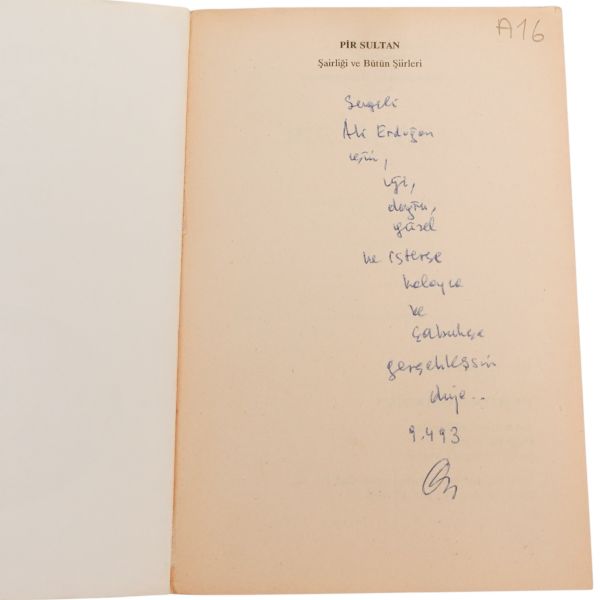 A16
PİR SULTAN
Şairliği ve Bütün Şiirleri
Sevgili
Ali Erdoğan
için,
iyi,
doğru,
güzel
ne isterse
kolayca
ve
çabukça
gerçekleşsin
diye..
9.4.93